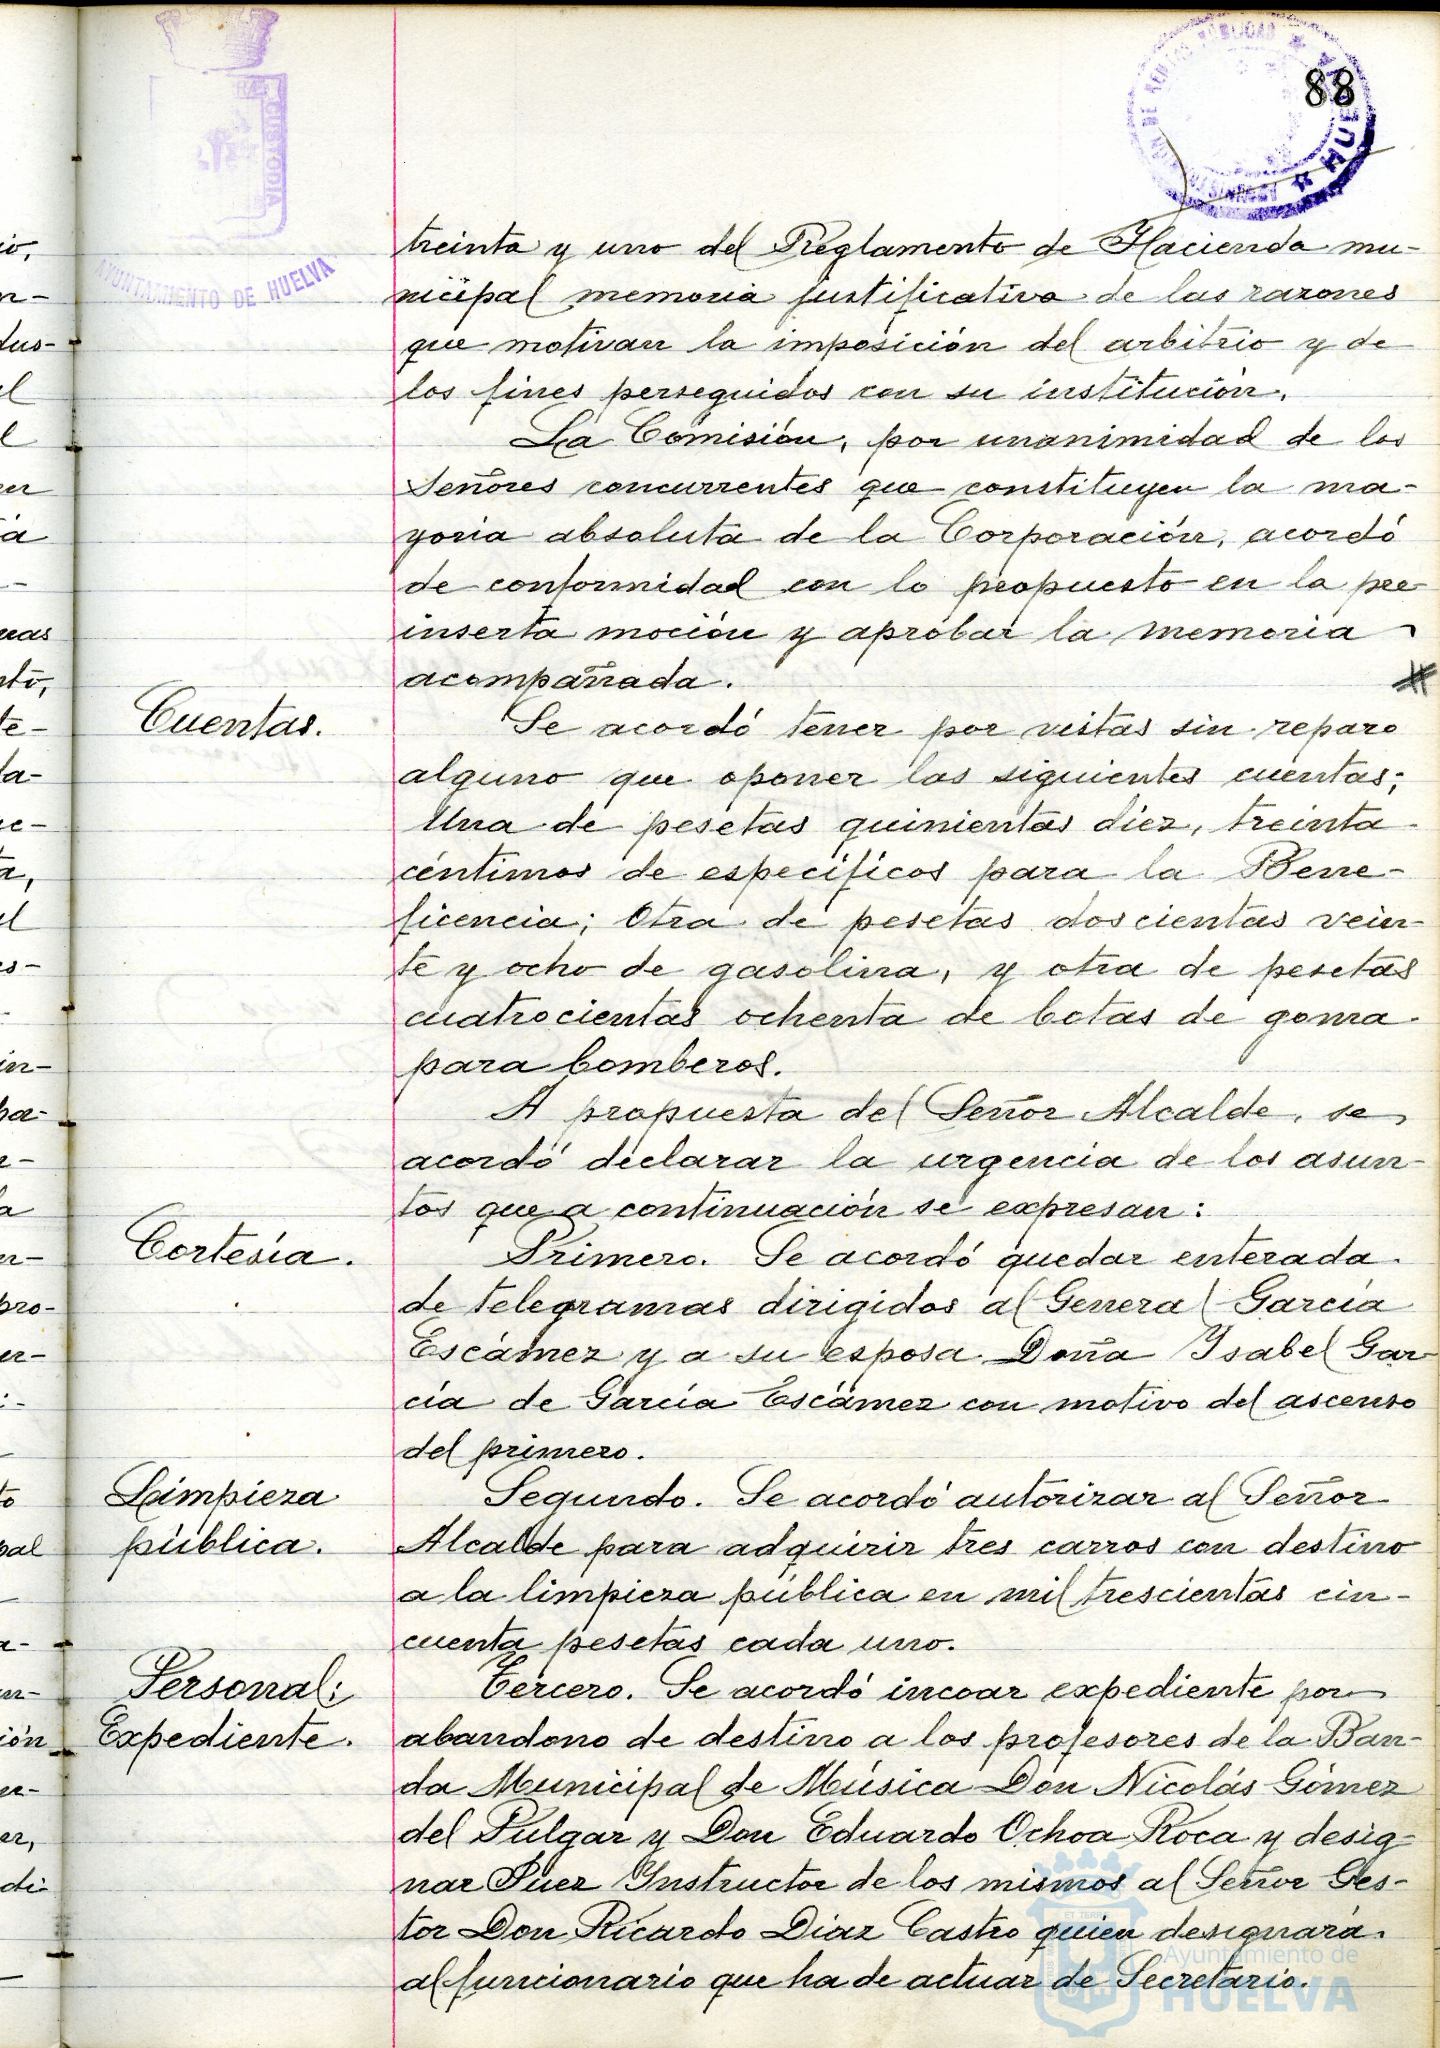 88
treinta y uno del Reglamento de Hacienda mu-
nicipal memoria justificativa de las razones
que motivan la imposición del arbitrio y de
los fines perseguidos con su institución.
La Comisión, por unanimidad de los
Señores concurrentes que constituyen la ma-
yoria absoluta de la Corporación, acordó
de conformidad con lo propuesto en la pre
inserta moción y aprobar la memoria
acompañada.
Cuentas.
Se acordó tener por vistas sin reparo
alguno que oponer las siguientes cuentas;
Una de pesetas quinientas diez, treinta
céntimos de específicos para la Bene-
ficencia; Otra de pesetas doscientas vein-
te y ocho de gasolina, y otra de pesetas
cuatrocientas ochenta de botas de goma
para bomberos.
A propuesta del Señor Alcalde, se
acordó declarar la urgencia de los asun-
tos que a continuación se expresan:
Cortesía.
Primero. Se acordó quedar enterada
de telegramas dirigidos al General García
Escámez y a su esposa Doña Isabel Gar-
cía de García Escámez con motivo del ascenso
del primero.
Limpieza
pública.
Segundo. Se acordó autorizar al Señor
Alcalde para adquirir tres carros con destino
a la limpieza pública en mil trescientas cin-
cuenta pesetas cada uno.
Personal;
Expediente.
Tercero. Se acordó incoar expediente por
abandono de destino a los profesores de la Ban-
da Municipal de Música Don Nicolás Gómez
del Pulgar y Don Eduardo Ochoa Roca y desig-
nar Juez Instructor de los mismos al Señor Ges-
tor Don Ricardo Díaz Castro quien designará
al funcionario que ha de actuar de Secretario.
CUSTODIA
AYUNTAMIENTO DE HUELVA
Ayuntamiento de
HUELVA